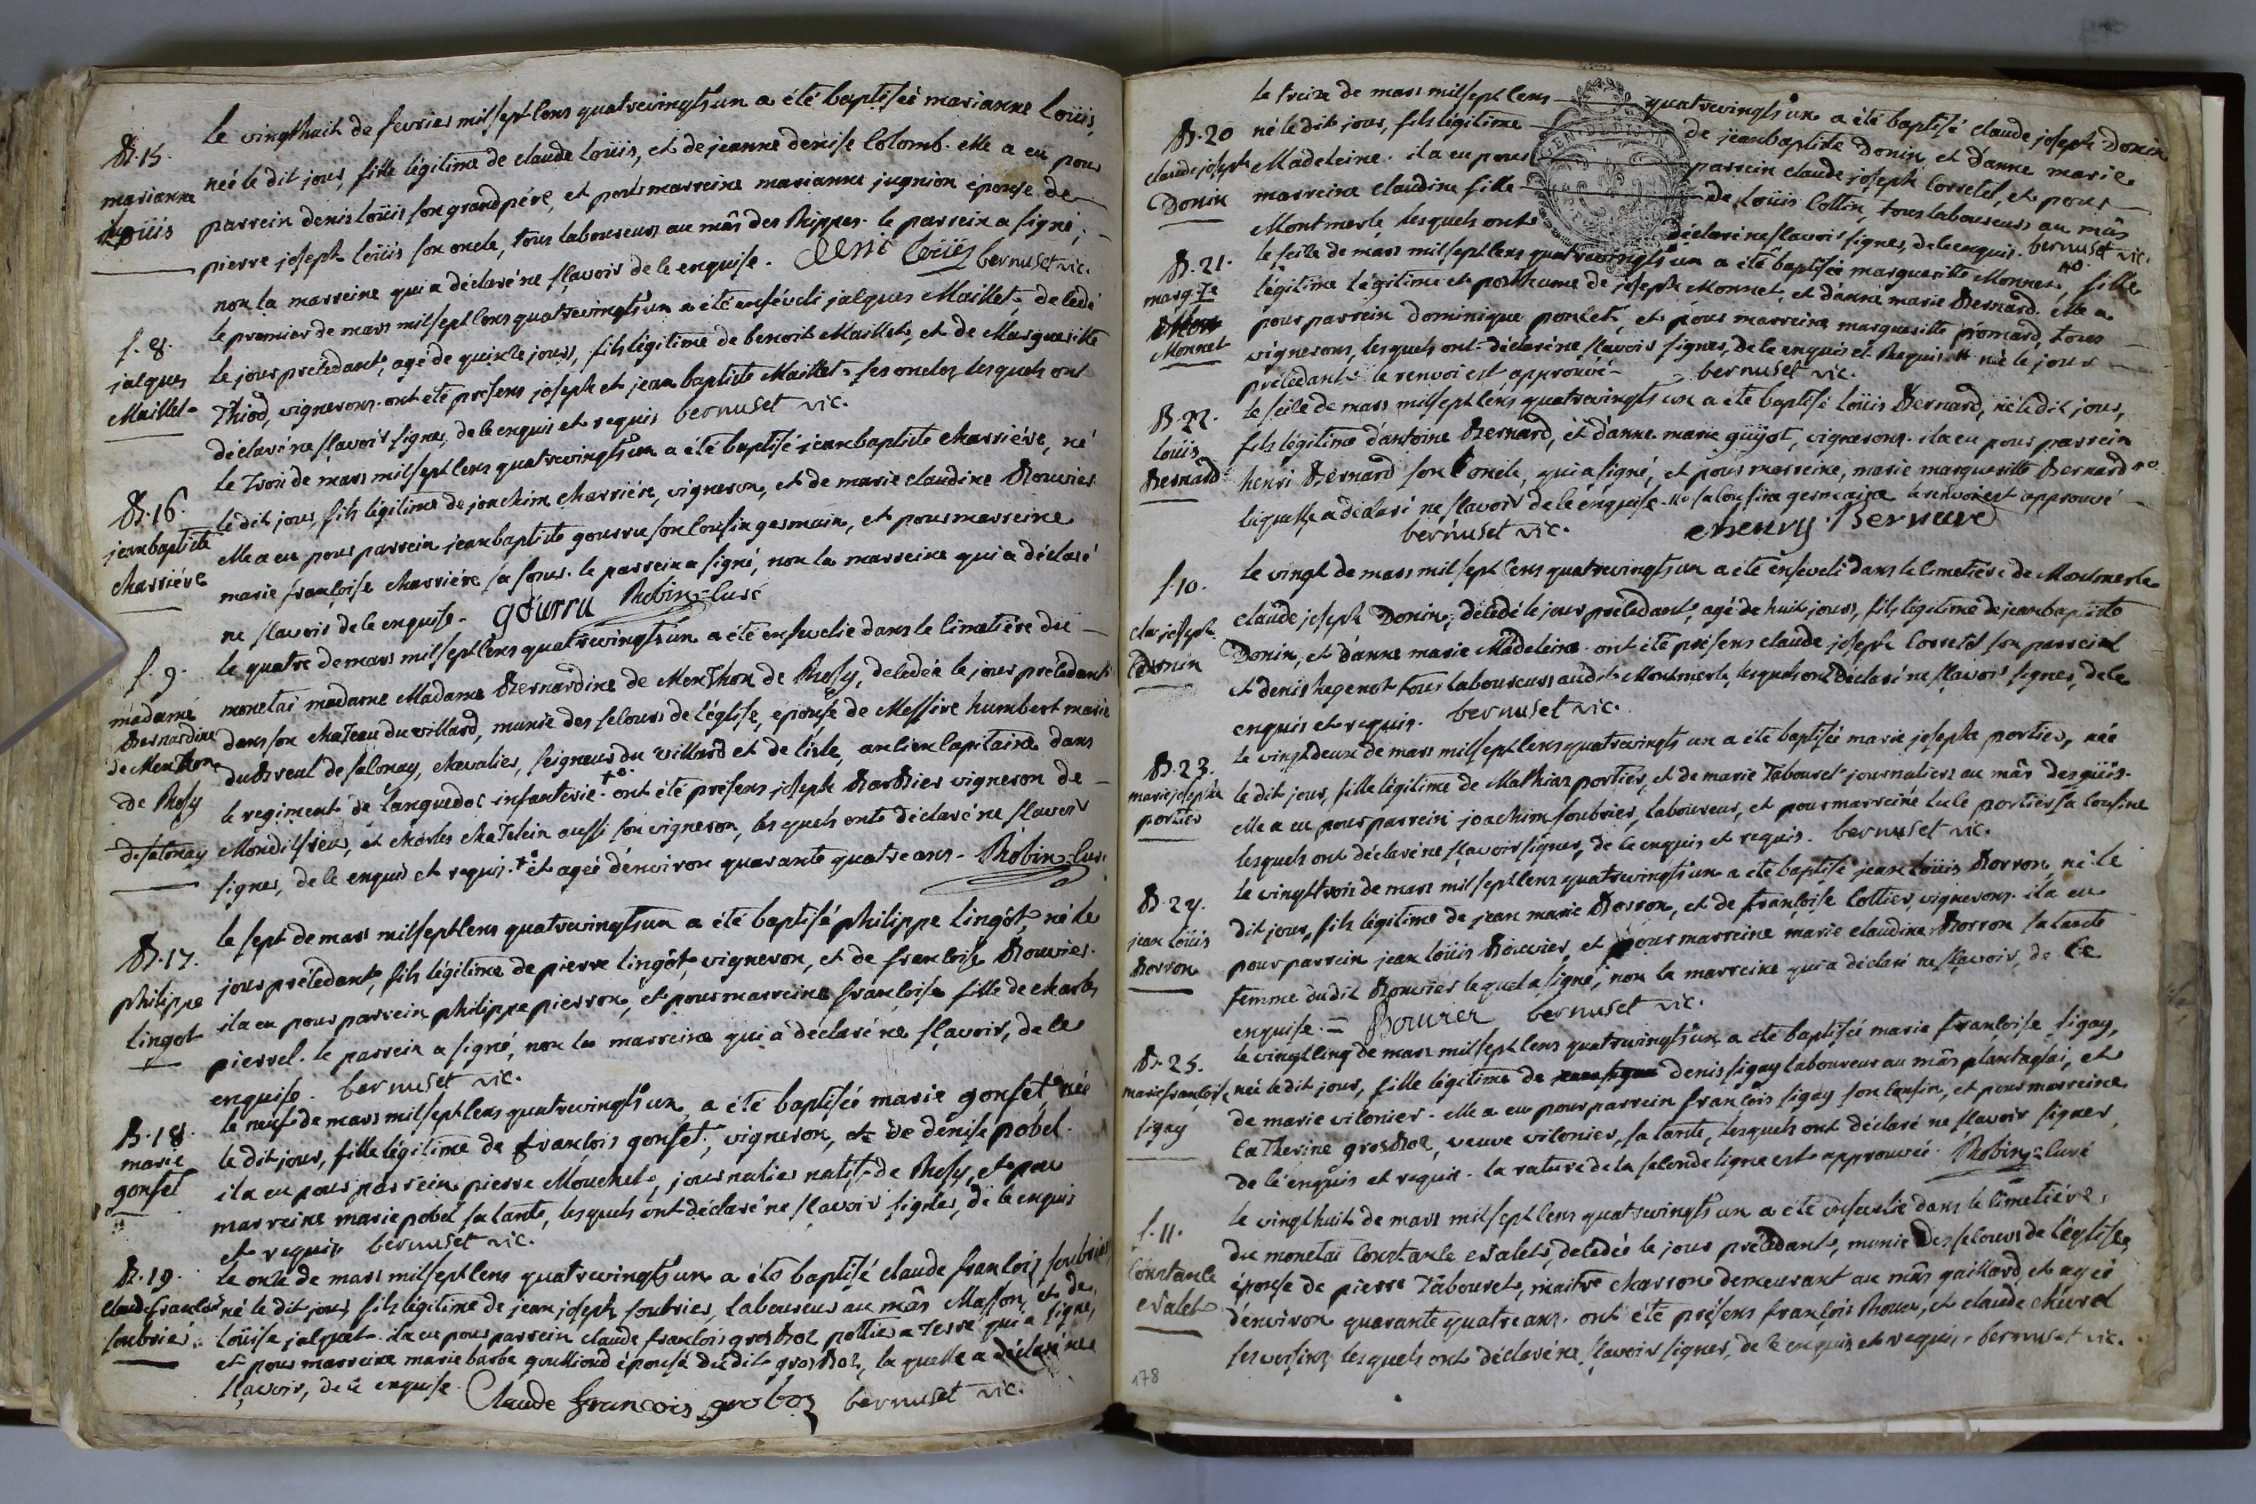 B. 15.
marianne
Loüis
le vingthuit de fevrier mil sept cens quatrevingts un a été baptiseé marianne Loüis,
neé le dit jour, fille légitime de claude Loüis, et de jeanne denise Colomb. elle a eu pour
parrein denis loüis son grand pére, et pour marreine marianne jugnion épouse de
pierre joseph loüis son oncle, tous laboureurs au mâs des Rippes. le parrein a signé,
non la marreine qui a déclaré ne sçavoir de ce enquise. bernuset vic.
s. 8.
jacques
Maillet
le premier de mars mil sept cens quatrevingts un a été enséveli jacques Maillet, decedé
le jour précedant, agé de quinze jours, fils légitime de benoit Maillet, et de Marguerite
Thiod, vignerons. ont été présens joseph et jean baptiste Maillet ses oncles lesquels ont
déclaré ne sçavoir signer, de ce enquis et requis bernuset vic.
B. 16.
jean baptiste
charriére
le trois de mars mil sept cens quatrevingts un a été baptisé jean baptiste charriére, né
le dit jour, fils légitime de joachim charriére, vigneron, et de marie claudine Bouvier
elle a eu pour parrein jean baptiste gourru son cousin germain, et pour marreine
marie françoise charriére sa soeur. le parrein a signé, non la marreine qui a déclaré
ne sçavoir de ce enquise. gourru Robin curé
s. 9.
madame
Bernardine
de Menthon
de Rosy
de salonay
le quatre de mars mil sept cens quatrevingts un a été enseveliе dans le cimetiére du
monetai madame Madame Bernardine de Menthon de Rosy, decedée le jour précedant
dans son chateau du villard, munie des secours de l'église, épouse de Messire humbert marie
duBreul de salonay, chevalier, seigneur du villard et de lisle, ancien capitaine dans
le regiment de languedoc infanterie. + ont été présens joseph BarBier vigneron de
Mondit sieur, et charles chatelein aussi son vigneron, lesquels ont déclaré ne sçavoir
signer, de ce enquis et requis. + et agée d'environ quarante quatre ans. Robin curé
B. 17.
philippe
lingot
le sept de mars mil sept cens quatrevingts un a été baptisé philippe lingot, né le
jour précedant, fils légitime de pierre lingôt, vigneron, et de françoise Bouvier.
il a eu pour parrein philippe pierron, et pour marreine françoise fille de charles
pierrel. le parrein a signé, non la marreine qui a déclaré ne sçavoir, de ce
enquise. bernuset vic.
B. 18.
marie
gonset
le neuf de mars mil sept cens quatrevingts un, a été baptiseé marie gonset neé
le dit jour, fille légitime de françois gonset, vigneron, et de denise pobel.
il a eu pour parrein pierre Mouchet, journalier natif de Rosy, et pour
marreine marie pobel sa tante, lesquels ont déclaré ne sçavoir signer, de ce enquis
et requis bernuset vic.
B. 19.
claude françois
soubrier
le onze de mars mil sept cens quatrevingts un a été baptisé claude françois soubrier
né le dit jour, fils légitime de jean joseph soubrier, laboureur au mâs Masson, et de
loüise jacquet. il a eu pour parrein claude françois grosBoz pottier a terre qui a signé,
et pour marreine marie barbe goulliond épouse du dit grosBoz, la quelle a déclaré ne
sçavoir, de ce enquise. Claude françois groboz bernuset vic.
B. 20
claude joseph
Donin
le treize de mars mil sept cens quatrevingts un a été baptisé claude joseph Donin
né le dit jour, fils légitime de jean baptiste Donin, et d'anne marie
Madeleine. il a eu pour parrein claude joseph Corretel, et pour
marreine claudine fille de Loüis Collin, tous laboureurs au mâs
Montmerle, lesquels ont déclaré ne sçavoir signer, de ce enquis. bernuset vic.
B. 21.
marg.te
Monnet
le seize de mars mil sept cens quatrevingts un a été baptiseé marguerite Monnet, fille
légitime légitime et posthume de joseph Monnet, et d'anne marie Bernard. elle a
pour parrein dominique poncet, et pour marreine marguerite promard, tous
vignerons, lesquels ont déclaré ne sçavoir signer, de ce enquis et Requis. neé le jour
précedant. le renvoi est approuvé bernuset vic.
B. 22.
loüis
Bernard
le seize de mars mil sept cens quatrevingts un a été baptisé Loüis Bernard, né le dit jour,
fils légitime d'antoine Bernard, et d'anne marie guÿot, vignerons. il a eu pour parrein
henri Bernard son oncle, qui a signé, et pour marreine, marie marguerite Bernard
laquelle a déclaré ne sçavoir de ce enquise. sa cousine germaine le renvoi est approuvé
bernuset vic. henry Bernard
s. 10.
cl. joseph
Donin
le vingt de mars mil sept cens quatrevingts un a été enseveli dans le cimetiére de Montmerle
claude joseph Donin, décedé le jour précedant, agé de huit jours, fils légitime de jean baptiste
Donin, et d'anne marie Madeleine. ont été présens claude joseph Corretel son parrein
et denis hagenot tous laboureurs au dit Montmerle, lesquels ont déclaré ne sçavoir signer, de ce
enquis et requis. bernuset vic.
B. 23.
marie josephe
portier
le vingtdeux de mars mil sept cens quatrevingts un a été baptiseé marie josephe portier, neé
le dit jour, fille légitime de Mathias portier, et de marie Tabouret journaliers au mâs desgüis.
elle a eu pour parrein joachim soubrier, laboureur, et pour marreine Luce portier sa cousine
lesquels ont déclaré ne sçavoir signer, de ce enquis et requis. bernuset vic.
B. 24.
jean loüis
Borron
le vingttrois de mars mil sept cens quatrevingts un a été baptisé jean loüis Borron, né le
dit jour, fils légitime de jean marie Borron, et de françoise Collier, vignerons. il a eu
pour parrein jean loüis Bouvier, et pour marreine marie claudine Borron sa tante
femme du dit Bouvier lequel a signé, non la marreine qui a déclaré ne sçavoir, de ce
enquise. = Bouvier bernuset vic.
B. 25.
marie françoise
sigay
le vingtcinq de mars mil sept cens quatrevingts un a été baptiseé marie françoise sigay,
neé le dit jour, fille légitime de denis sigay laboureur au mâs plantaglai, et
de marie vilonier. elle a eu pour parrein françois sigay son cousin, et pour marreine
Catherine grosBoz, veuve vilonier, sa tante, lesquels ont déclaré ne sçavoir signer
de ce enquis et requis. la rature de la seconde ligne est approuvée. Robin curé
s. 11.
Constance
evalet
le vingthuit de mars mil sept cens quatrevingts un a été ensevelie dans le cimetiére
du monetai Constance evalet, decedée le jour précedant, munie des secours de l'église,
épouse de pierre Tabouret, maitre charron demeurant au mâs gaillard, et ageé
d'environ quarante quatre ans. ont été présens françois Roux, et claude chevrel
ses voisins lesquels ont déclaré ne sçavoir signer, de ce enquis et requis. bernuset vic.
178